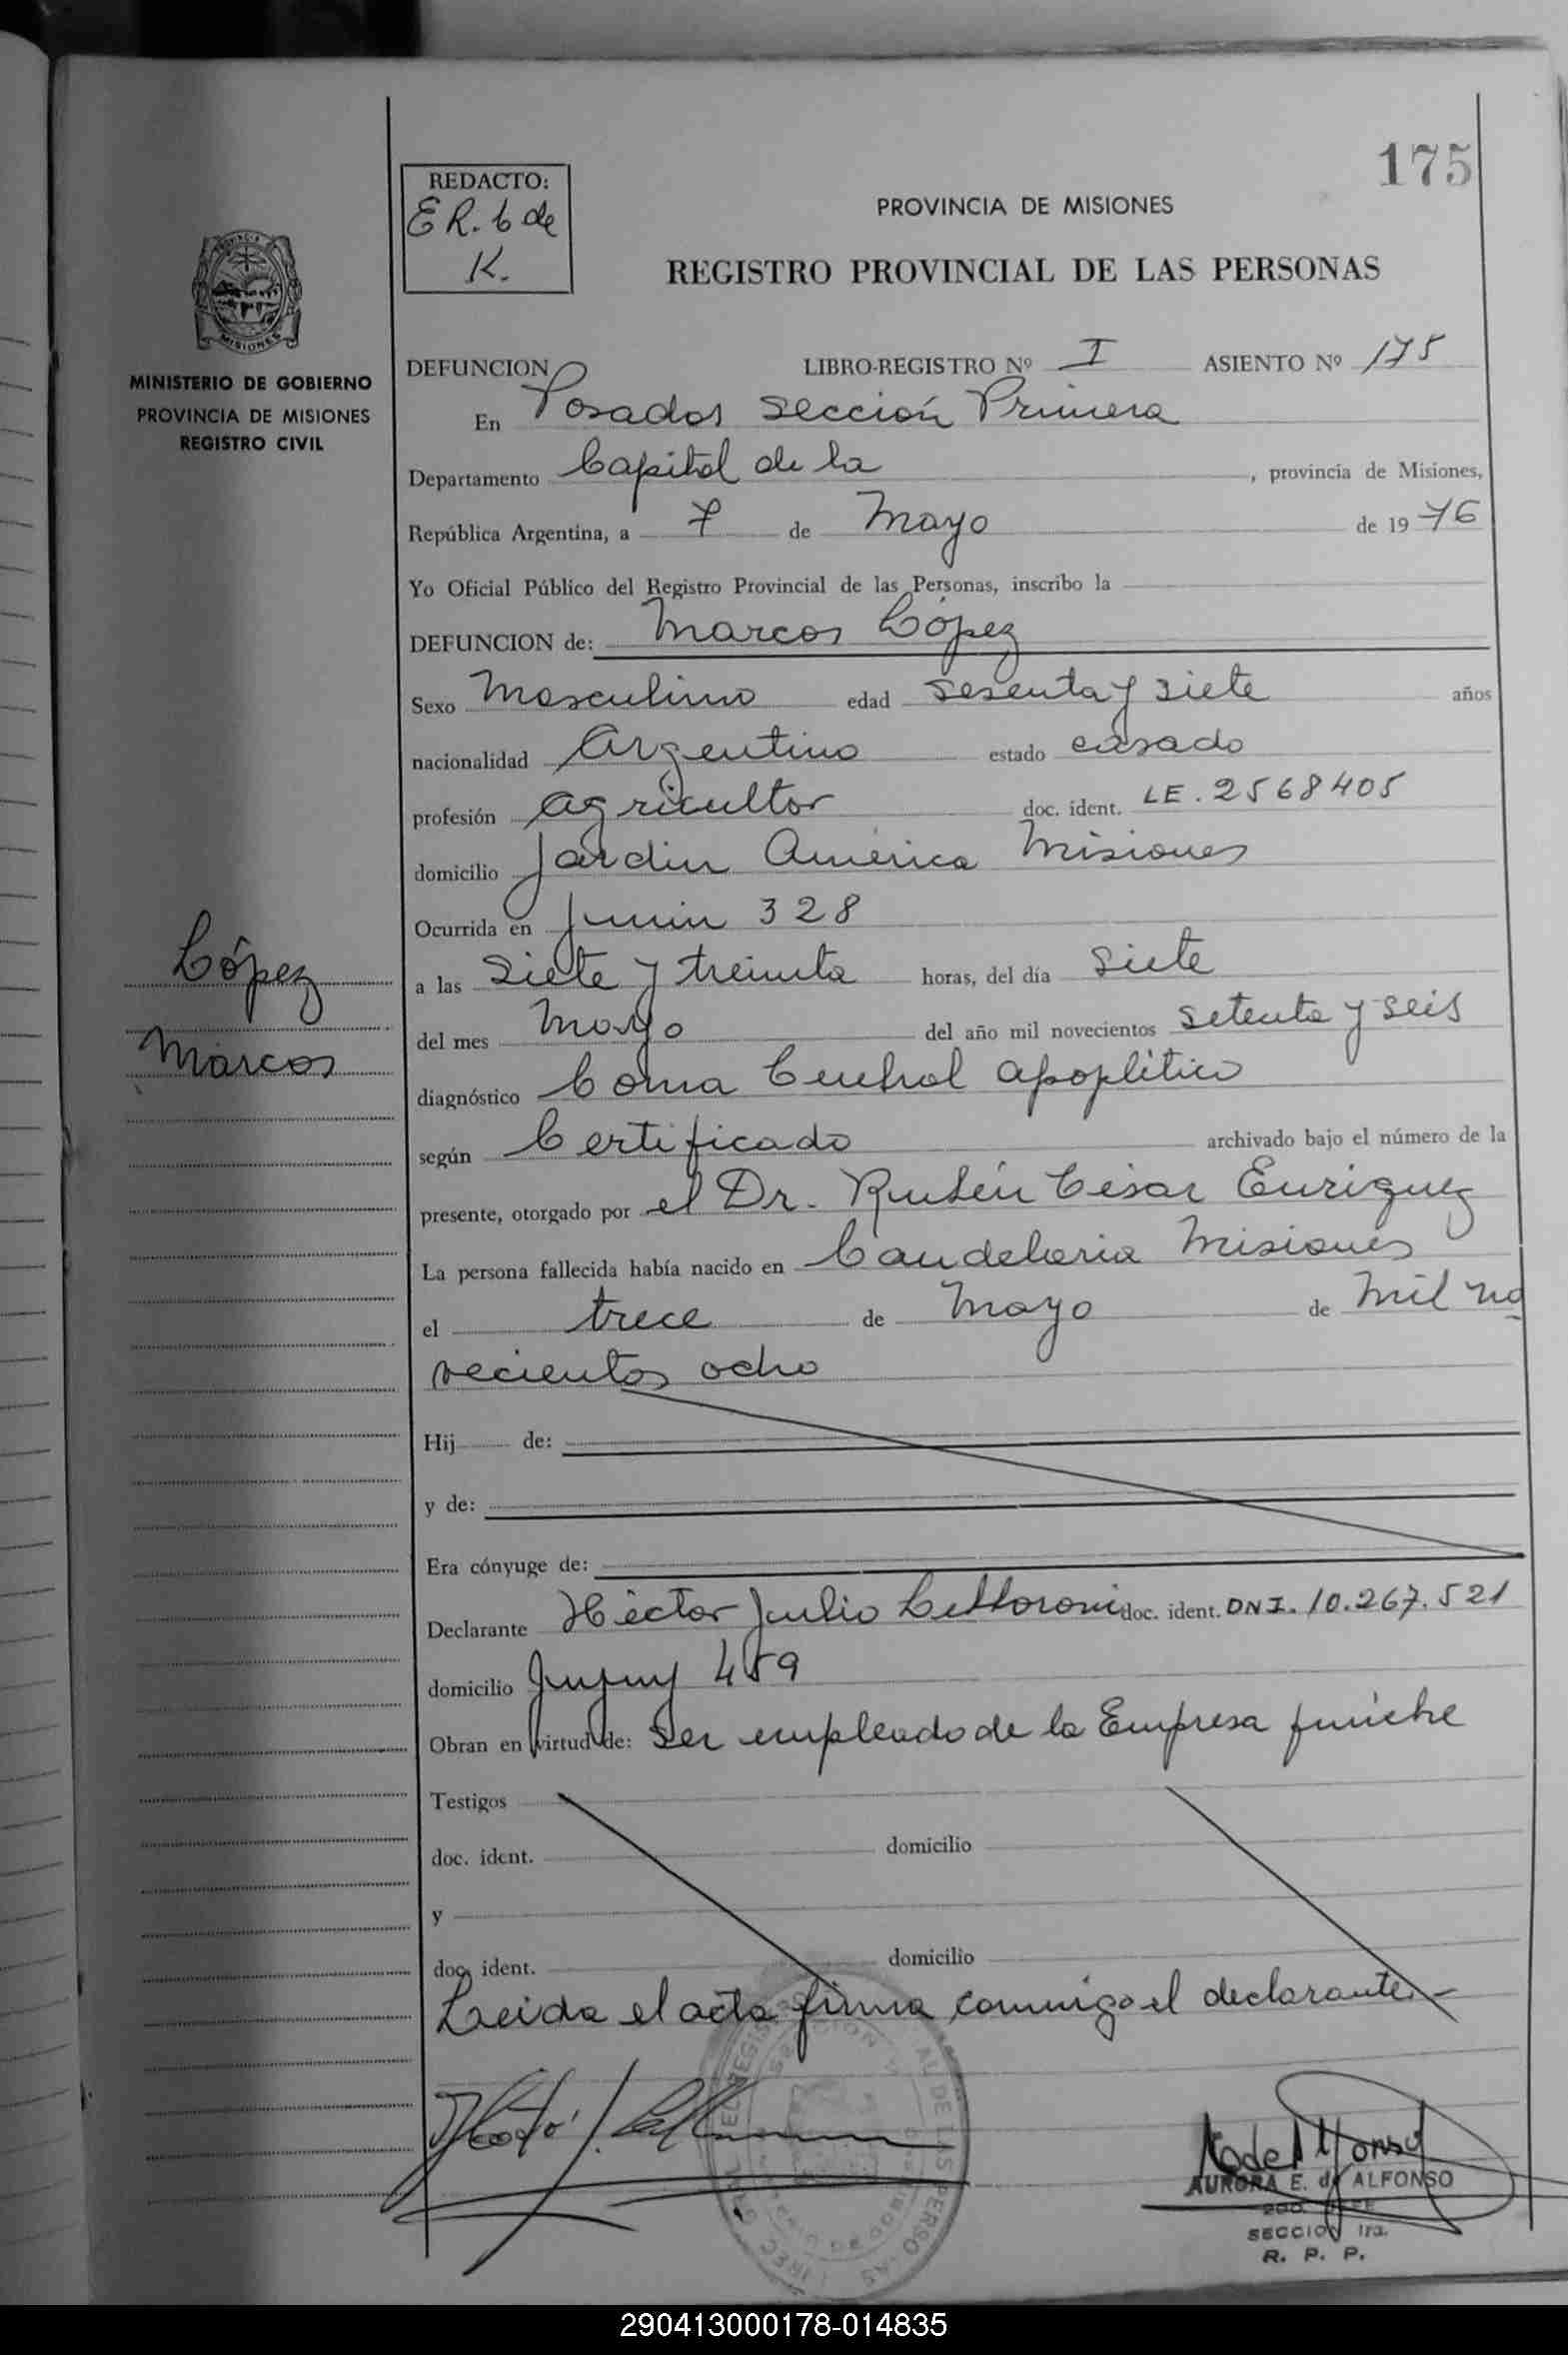 175
REDACTO:
E R. b de
K.
PROVINCIA DE MISIONES
REGISTRO PROVINCIAL DE LAS PERSONAS
MISIONES
MINISTERIO DE GOBIERNO
PROVINCIA DE MISIONES
REGISTRO CIVIL
DEFUNCION LIBRO-REGISTRO Nº I ASIENTO Nº 175
En Posadas Sección Primera
Departamento Capital de la , provincia de Misiones,
República Argentina, a 7 de Mayo de 1976
Yo Oficial Público del Registro Provincial de las Personas, inscribo la
DEFUNCION de: Marcos López
Sexo Masculino edad sesenta y siete años
nacionalidad Argentino estado casado
profesión agricultor doc. ident. LE. 2568405
domicilio Jardin América Misiones
Ocurrida en Junin 328
López
a las siete y treinta horas, del día siete
Marcos
del mes Mayo del año mil novecientos setenta y seis
diagnóstico Coma Central apoplítico
según Certificado archivado bajo el número de la
presente, otorgado por el Dr. Rubén César Enriquez
La persona fallecida había nacido en Candelaria Misiones
el trece de Mayo de mil no
vecientos ocho
Hij de:
y de:
Era cónyuge de:
Declarante Héctor Julio doc. ident. DNI. 10.267.521
domicilio Jujuy 459
Obran en virtud de: ser empleado de la Empresa fúnebre
Testigos
doc. ident. domicilio
y
doc. ident. domicilio
Leida el acta firma conmigo el declarante.-
AURORA E. de ALFONSO
SECCION 1ra.
R. P. P.
290413000178-014835